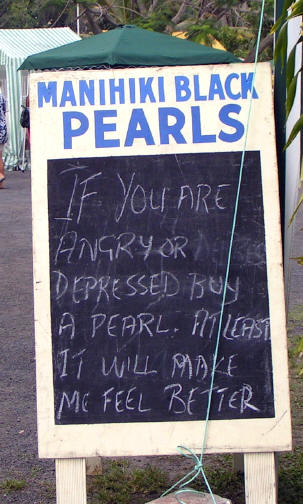 MANIHIKI BLACK
PEARLS
IF YOU ARE
ANGRY OR
DEPRESSED BUY
A PEARL. AT LEAST
IT WILL MAKE
ME FEEL BETTER